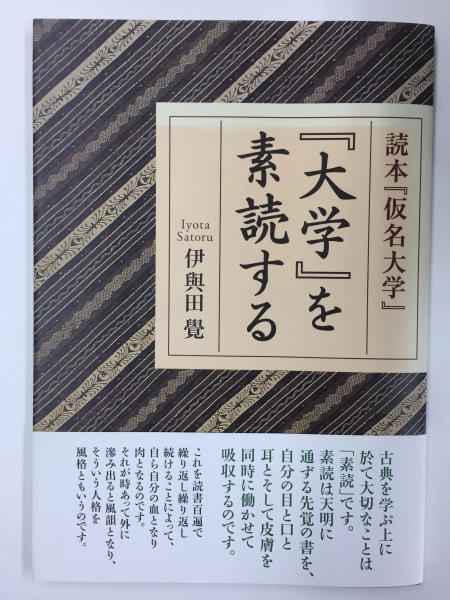 読本『仮名大学』
『大学』を
素読する
Iyota
Satoru
伊與田 覺
古典を学ぶ上に
於て大切なことは
「素読」です。
素読は天明に
通ずる先覚の書を、
自分の目と口と
耳とそして皮膚を
同時に働かせて
吸収するのです。
これを読書百遍で
繰り返し繰り返し
続けることによって、
自ら自分の血となり
肉となるのです。
それが時あって外に
滲み出ると風韻となり、
そういう人格を
風格ともいうのです。